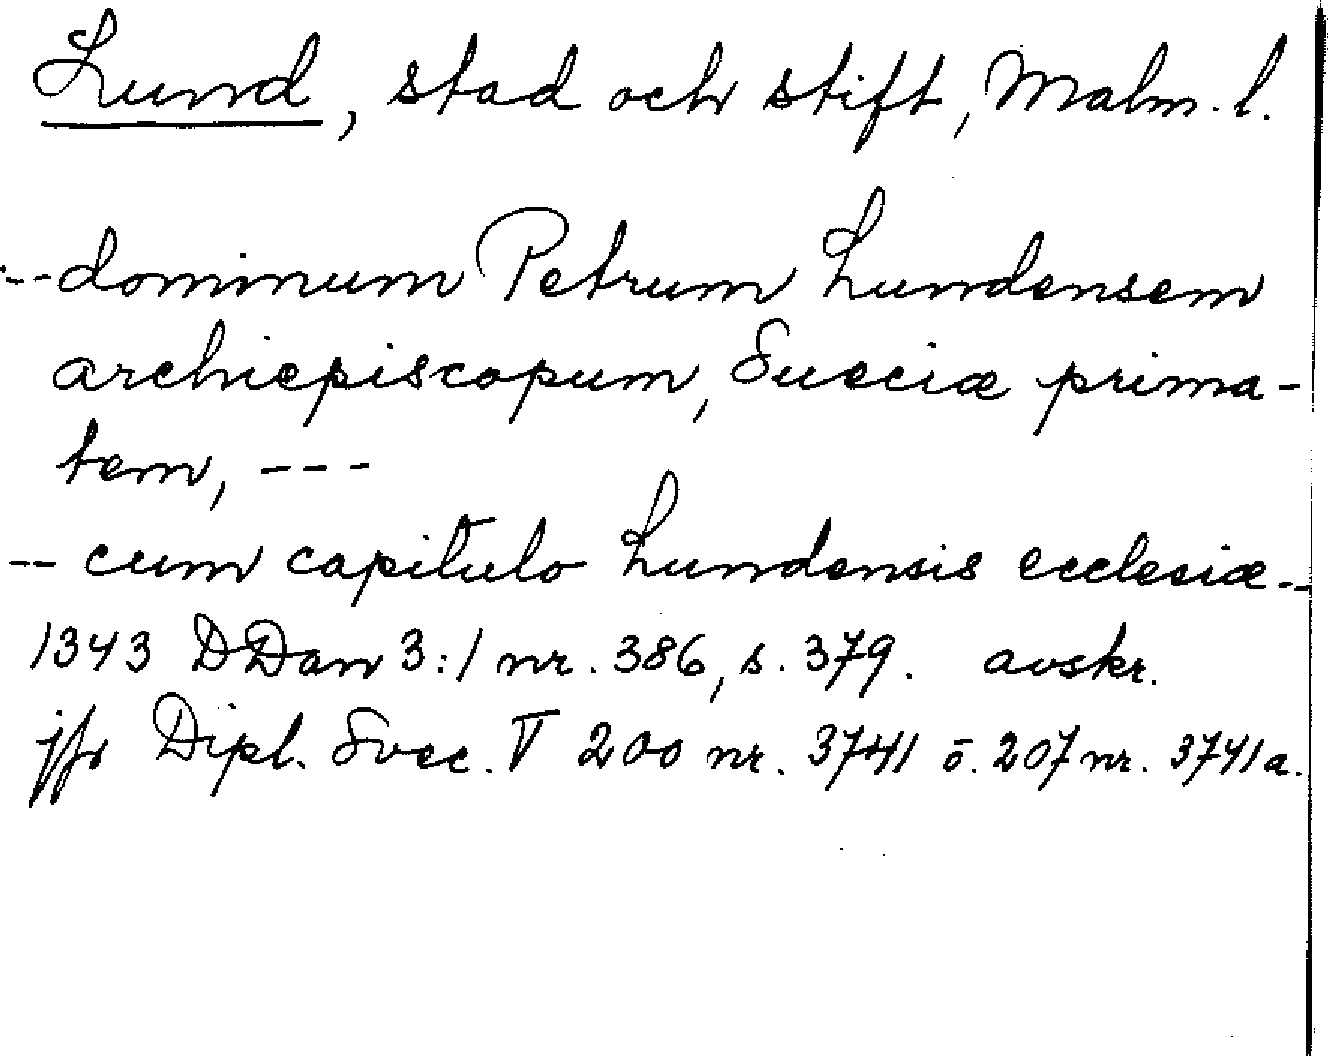 Lund, stad och stift, Malm. l.
--- dominum Petrum Lundensem
archiepiscopum, Sueciæ prima-
tem, ---
-- cum capitulo Lundensis ecclesiæ --
1343 DDan 3:1 nr. 386, s. 379. avskr.
jfr Dipl. Svec. V 200 nr. 3741 o. 207 nr. 3741a.